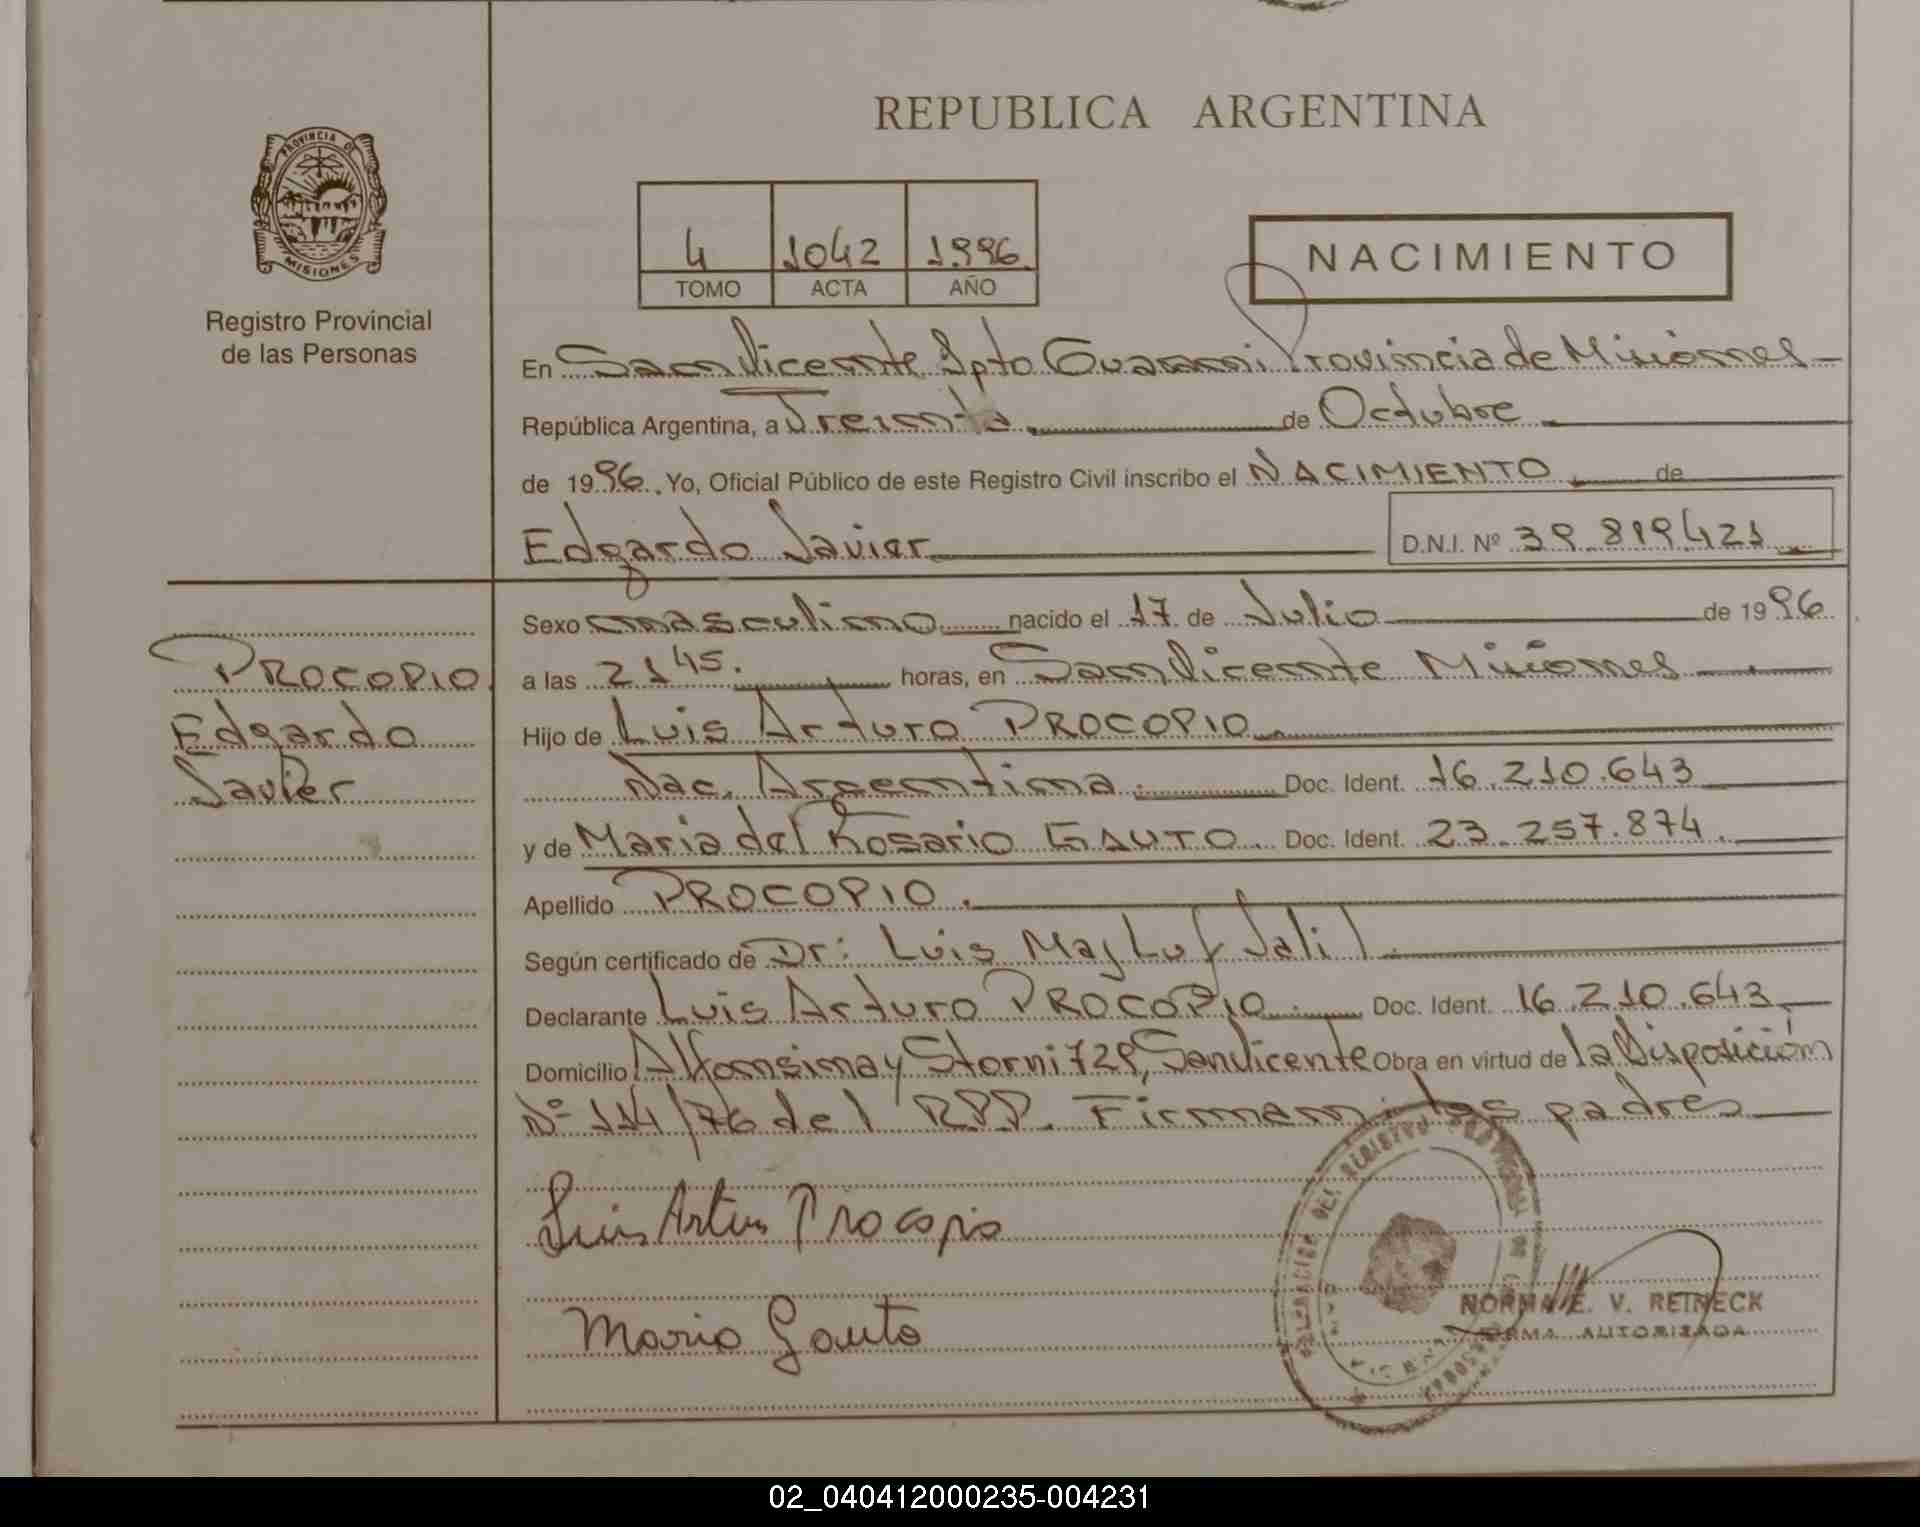 REPUBLICA ARGENTINA
PROVINCIA DE
MISIONES
Registro Provincial
de las Personas
4 1042 1996
TOMO ACTA AÑO
NACIMIENTO
En San Vicente Dpto Guarani Provincia de Misiones
República Argentina, a Treinta de Octubre
de 1996. Yo, Oficial Público de este Registro Civil inscribo el NACIMIENTO de
Edgardo Javier D.N.I. Nº 39 819421
Sexo masculino nacido el 17 de Julio de 1996
PROCOPIO
Edgardo
Javier
a las 21 45. horas, en San Vicente Misiones
Hijo de Luis Arturo PROCOPIO
Nac. Argentina Doc. Ident. 16.210.643
y de Maria del Rosario GAUTO Doc. Ident. 23.257.874.
Apellido PROCOPIO.
Según certificado de Dr: Luis Majluf Jalil
Declarante Luis Arturo PROCOPIO Doc. Ident. 16.210.643
Domicilio Alfonsina y Storni 729, San Vicente Obra en virtud de la Disposición
Nº 114/76 del RPP. Firman: los padres
Luis Arturo Procopio
Maria Gauto
NORMA E. V. REINECK
FIRMA AUTORIZADA
02_040412000235-004231